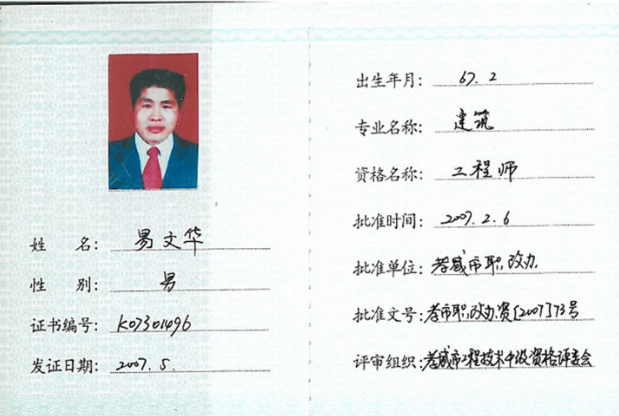 姓 名: 易文华
性 别: 男
证书编号: K07301496
发证日期: 2007.5.
出生年月: 67.2
专业名称: 建筑
资格名称: 工程师
批准时间: 2007.2.6
批准单位: 孝感市职改办
批准文号: 孝市职改办资[2007]73号
评审组织: 孝感市工程技术中级资格评委会